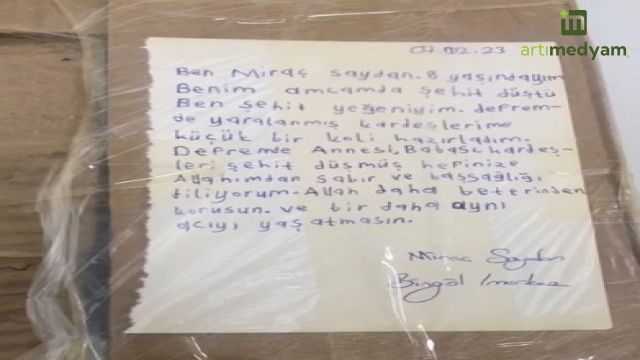 artımedyam
07.02.23
Ben Miraç Saydan. 8 yaşındayım
Benim amcamda şehit düştü
Ben şehit yeğeniyim. deprem-
de yaralanmış kardeşlerime
küçük bir koli hazırladım.
Depremde Annesi, Babası, kardeş-
leri şehit düşmüş hepinize
Allahımdan sabır ve başsağlığı
diliyorum. Allah daha beterinden
korusun. ve bir daha aynı
acıyı yaşatmasın.
Miraç Saydan
Bingöl / merkez